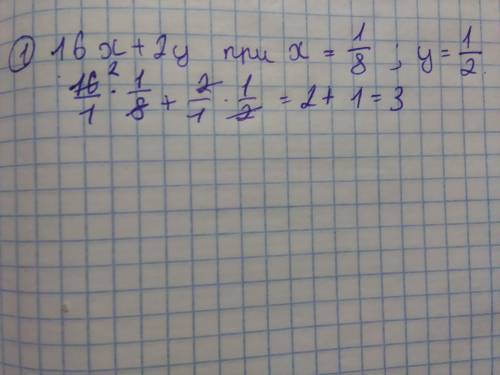 ① 16x + 2y при x = 1/8 ; y = 1/2
16/1 ² · 1/8 + 2/1 · 1/2 = 2 + 1 = 3